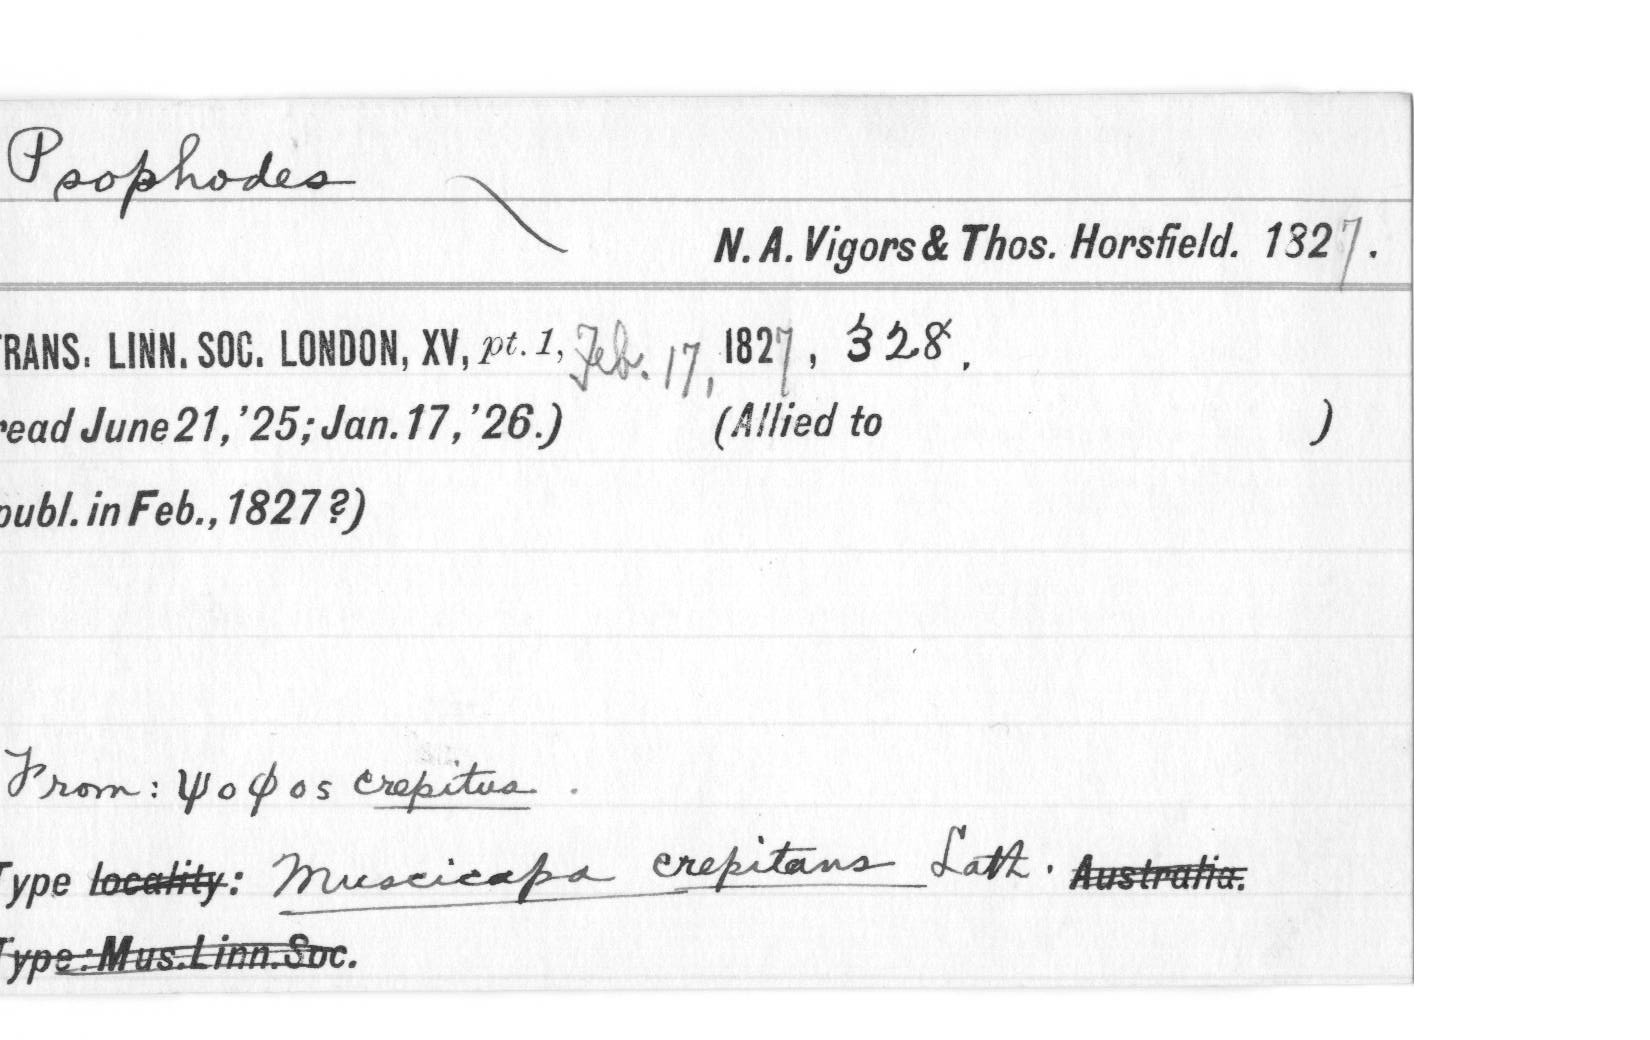 Psophodes
N. A. Vigors & Thos. Horsfield. 1827.
TRANS. LINN. SOC. LONDON, XV, pt. 1, Feb. 17, 1827, 328.
read June 21, '25; Jan. 17, '26.) (Allied to )
publ. in Feb., 1827?)
From: ψοφος crepitus.
Type locality: Muscicapa crepitans Lath. Australia.
Type: Mus. Linn. Soc.